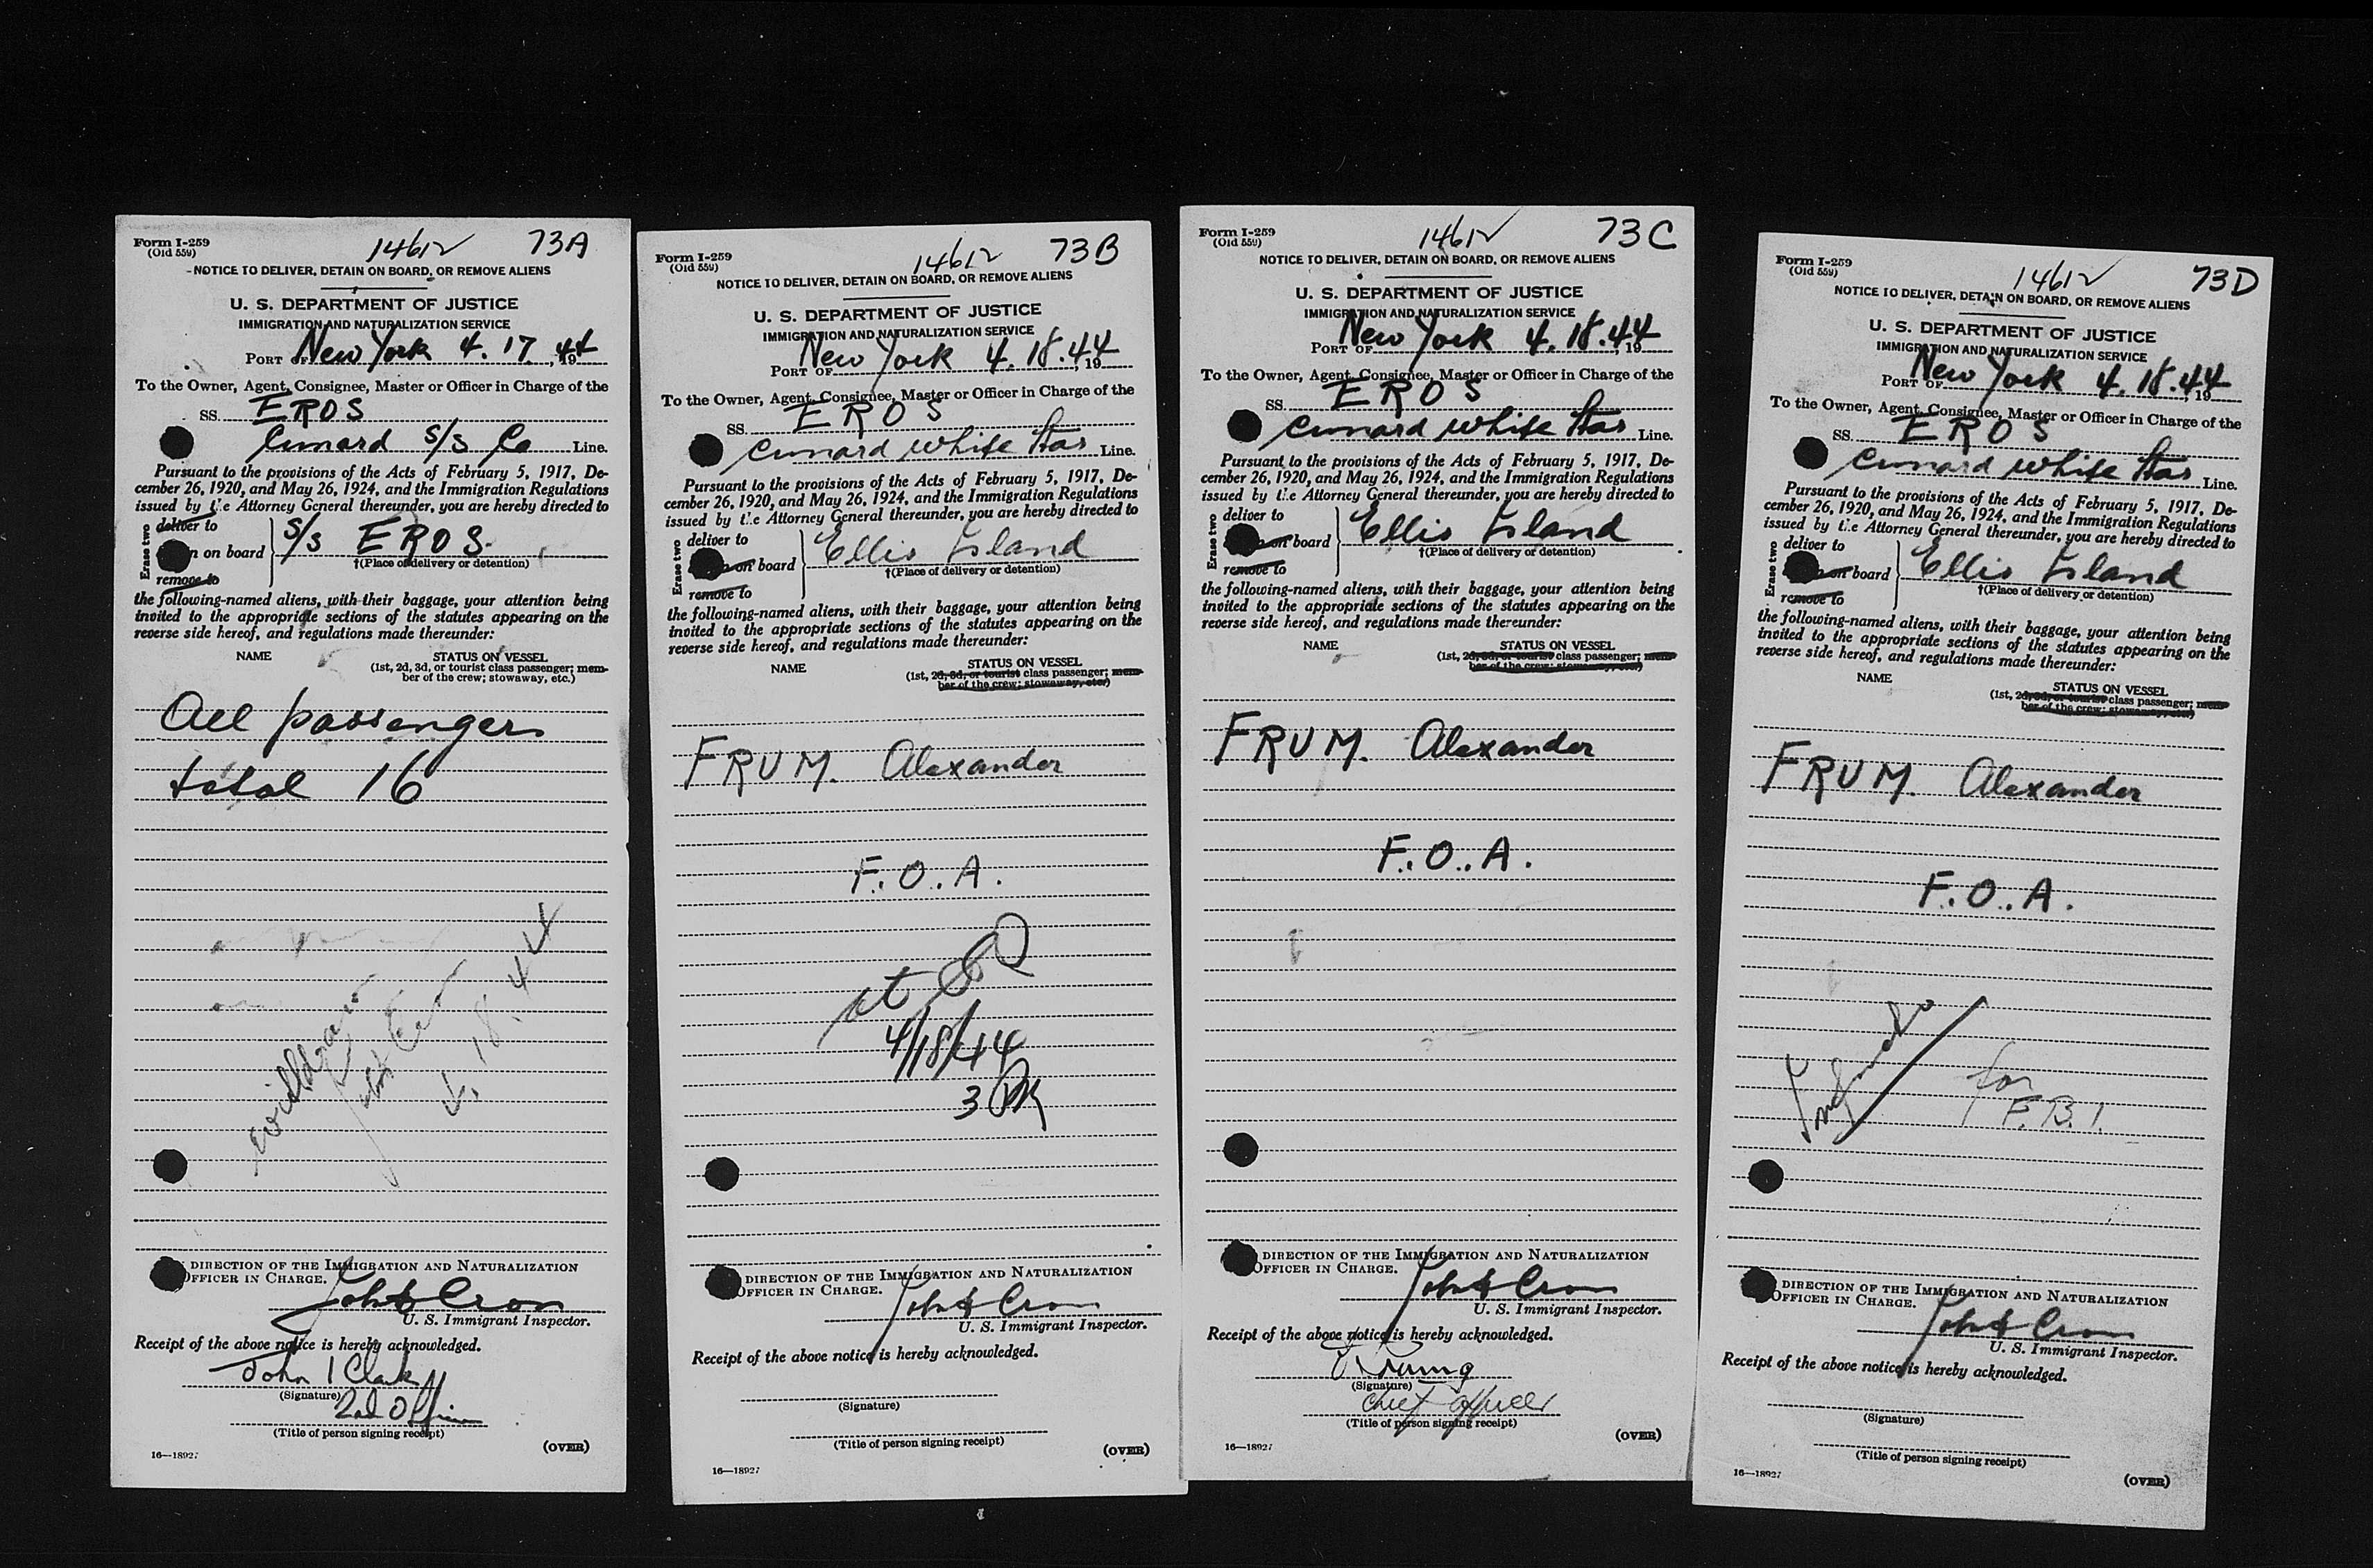 Form I-259
(Old 559)
14612 73A
NOTICE TO DELIVER, DETAIN ON BOARD, OR REMOVE ALIENS
U. S. DEPARTMENT OF JUSTICE
IMMIGRATION AND NATURALIZATION SERVICE
PORT OF New York 4. 17, 1944
To the Owner, Agent, Consignee, Master or Officer in Charge of the
SS. EROS
Cunard S/S Co Line.
Pursuant to the provisions of the Acts of February 5, 1917, De-
cember 26, 1920, and May 26, 1924, and the Immigration Regulations
issued by the Attorney General thereunder, you are hereby directed to
Erase two
deliver to
n on board S/S EROS.
remove to
†(Place of delivery or detention)
the following-named aliens, with their baggage, your attention being
invited to the appropriate sections of the statutes appearing on the
reverse side hereof, and regulations made thereunder:
NAME STATUS ON VESSEL
(1st, 2d, 3d, or tourist class passenger; mem-
ber of the crew; stowaway, etc.)
All passengers
total 16
4. 18. 44
DIRECTION OF THE IMMIGRATION AND NATURALIZATION
OFFICER IN CHARGE.
John Cron
U. S. Immigrant Inspector.
Receipt of the above notice is hereby acknowledged.
John I Clark
(Signature)
2nd Officer
(Title of person signing receipt)
(OVER)
16—18927
Form I-259
(Old 559)
14612 73B
NOTICE TO DELIVER, DETAIN ON BOARD, OR REMOVE ALIENS
U. S. DEPARTMENT OF JUSTICE
IMMIGRATION AND NATURALIZATION SERVICE
PORT OF New York 4. 18. 44, 19
To the Owner, Agent, Consignee, Master or Officer in Charge of the
SS. EROS
Cunard White Star Line.
Pursuant to the provisions of the Acts of February 5, 1917, De-
cember 26, 1920, and May 26, 1924, and the Immigration Regulations
issued by the Attorney General thereunder, you are hereby directed to
Erase two
deliver to
on board Ellis Island
remove to
†(Place of delivery or detention)
the following-named aliens, with their baggage, your attention being
invited to the appropriate sections of the statutes appearing on the
reverse side hereof, and regulations made thereunder:
NAME STATUS ON VESSEL
(1st, 2d, 3d, or tourist class passenger; mem-
ber of the crew; stowaway, etc.)
FRUM. Alexander
F. O. A.
4/18/44
3 PM
DIRECTION OF THE IMMIGRATION AND NATURALIZATION
OFFICER IN CHARGE.
John Cron
U. S. Immigrant Inspector.
Receipt of the above notice is hereby acknowledged.
(Signature)
(Title of person signing receipt)
(OVER)
16—18927
Form I-259
(Old 559)
14612 73C
NOTICE TO DELIVER, DETAIN ON BOARD, OR REMOVE ALIENS
U. S. DEPARTMENT OF JUSTICE
IMMIGRATION AND NATURALIZATION SERVICE
PORT OF New York 4. 18. 44, 19
To the Owner, Agent, Consignee, Master or Officer in Charge of the
SS. EROS
Cunard White Star Line.
Pursuant to the provisions of the Acts of February 5, 1917, De-
cember 26, 1920, and May 26, 1924, and the Immigration Regulations
issued by the Attorney General thereunder, you are hereby directed to
Erase two
deliver to
on board Ellis Island
remove to
†(Place of delivery or detention)
the following-named aliens, with their baggage, your attention being
invited to the appropriate sections of the statutes appearing on the
reverse side hereof, and regulations made thereunder:
NAME STATUS ON VESSEL
(1st, 2d, 3d, or tourist class passenger; mem-
ber of the crew; stowaway, etc.)
FRUM. Alexander
F. O. A.
DIRECTION OF THE IMMIGRATION AND NATURALIZATION
OFFICER IN CHARGE.
John Cron
U. S. Immigrant Inspector.
Receipt of the above notice is hereby acknowledged.
(Signature)
Chief Officer
(Title of person signing receipt)
(OVER)
16—18927
Form I-259
(Old 559)
14612 73D
NOTICE TO DELIVER, DETAIN ON BOARD, OR REMOVE ALIENS
U. S. DEPARTMENT OF JUSTICE
IMMIGRATION AND NATURALIZATION SERVICE
PORT OF New York 4. 18. 44, 19
To the Owner, Agent, Consignee, Master or Officer in Charge of the
SS. EROS
Cunard White Star Line.
Pursuant to the provisions of the Acts of February 5, 1917, De-
cember 26, 1920, and May 26, 1924, and the Immigration Regulations
issued by the Attorney General thereunder, you are hereby directed to
Erase two
deliver to
on board Ellis Island
remove to
†(Place of delivery or detention)
the following-named aliens, with their baggage, your attention being
invited to the appropriate sections of the statutes appearing on the
reverse side hereof, and regulations made thereunder:
NAME STATUS ON VESSEL
(1st, 2d, 3d, or tourist class passenger; mem-
ber of the crew; stowaway, etc.)
FRUM. Alexander
F. O. A.
for
F. B. I.
DIRECTION OF THE IMMIGRATION AND NATURALIZATION
OFFICER IN CHARGE.
John Cron
U. S. Immigrant Inspector.
Receipt of the above notice is hereby acknowledged.
(Signature)
(Title of person signing receipt)
(OVER)
16—18927